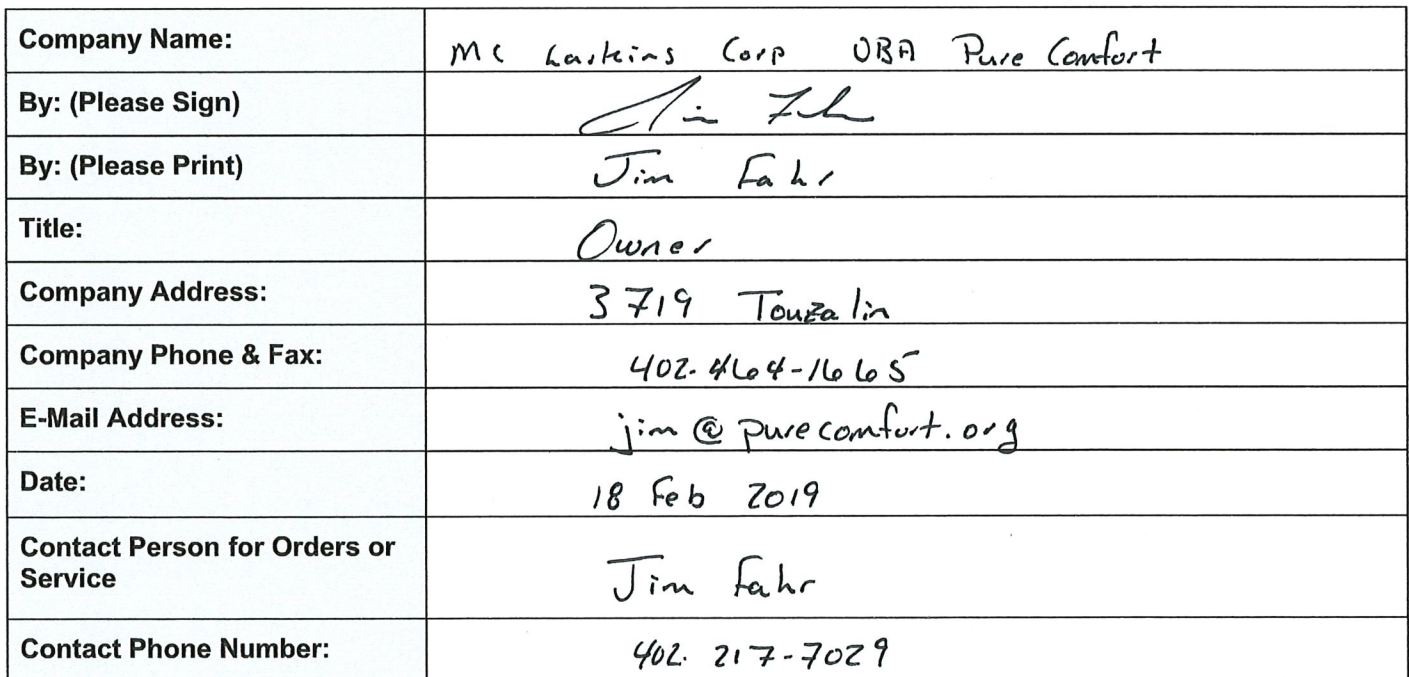 Company Name: MC Laskins Corp DBA Pure Comfort
By: (Please Sign) Jim Fahr
By: (Please Print) Jim Fahr
Title: Owner
Company Address: 3719 Touzalin
Company Phone & Fax: 402-464-1665
E-Mail Address: jim@purecomfort.org
Date: 18 Feb 2019
Contact Person for Orders or
Service Jim Fahr
Contact Phone Number: 402. 217-7029